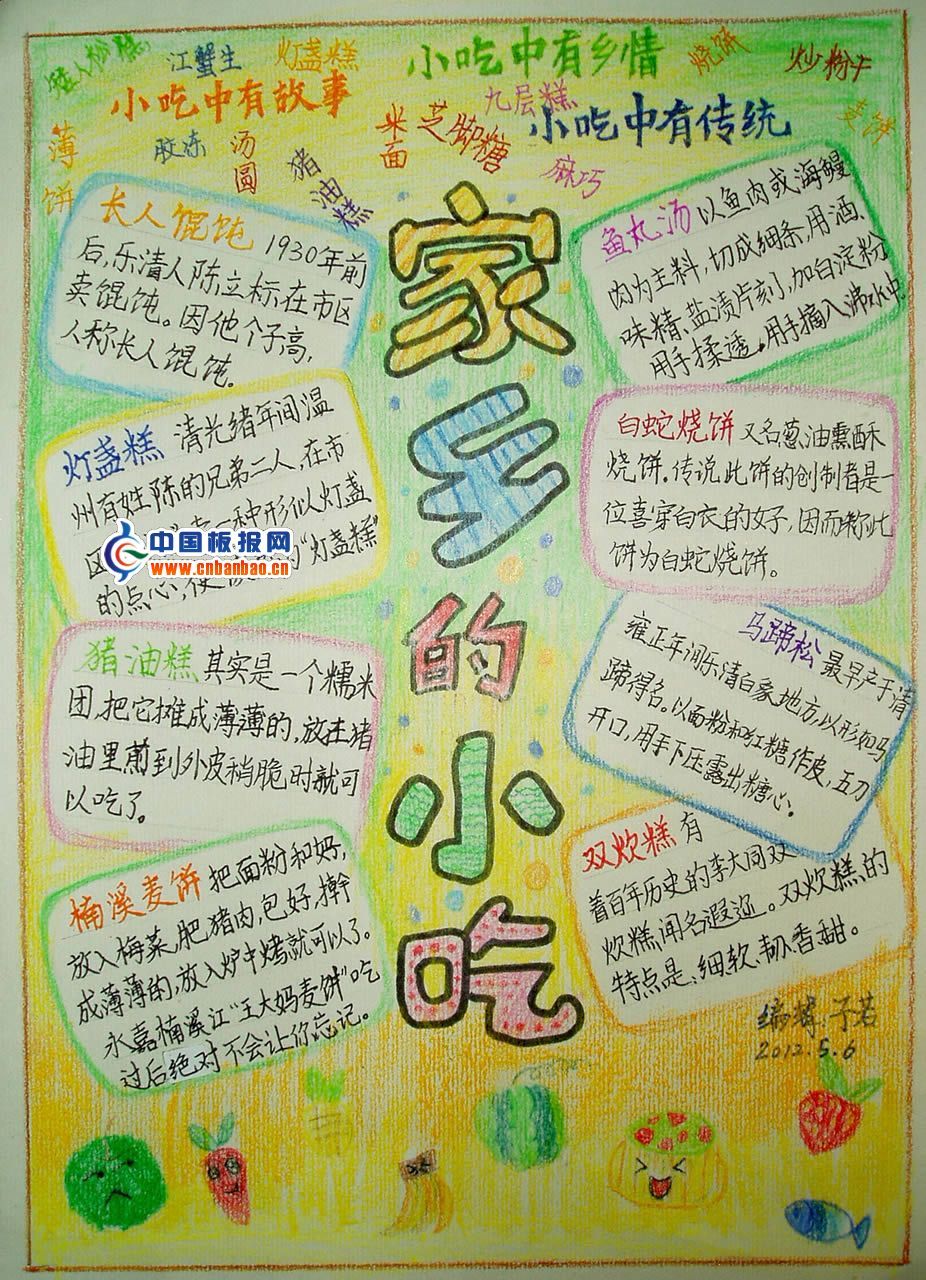 江蟹生
灯盏糕
小吃中有乡情
烧饼
炒粉干
小吃中有故事
九层糕
小吃中有传统
麦饼
薄
饼
胶冻
汤
圆
猪
油
糕
米
面
芝脚糖
麻巧
家
乡
的
小
吃
长人馄饨 1930年前
后,乐清人陈立标在市区
卖馄饨。因他个子高,
人称长人馄饨。
灯盏糕 清光绪年间温
州有姓陈的兄弟二人,在市
区
种形似以灯盏
的点心,
的“灯盏糕”
中国板报网
www.cnbanbao.cn
猪油糕 其实是一个糯米
团,把它摊成薄薄的,放在猪
油里煎到外皮稍脆时就可
以吃了。
楠溪麦饼 把面粉和好,
放入梅菜,肥猪肉,包好,擀
成薄薄的,放入炉中烤就可以了。
永嘉楠溪江“王大妈麦饼”吃
过后绝对不会让你忘记。
鱼丸汤 以鱼肉或海鳗
肉为主料,切成细条,用酒、
味精、盐渍片刻,加白淀粉
用手揉透。用手摘入沸水中.
白蛇烧饼 又名葱油熏酥
烧饼。传说此饼的创制者是一
位喜穿白衣的女子,因而称此
饼为白蛇烧饼。
马蹄松 最早产于清
雍正年间乐清白象地方,以形如马
蹄得名。以面粉和红糖作皮,五刀
开口,用手下压露出糖心。
双炊糕 有
着百年历史的李大同双
炊糕闻名遐迩。双炊糕的
特点是:细、软、韧、香、甜。
编辑:子若
2012.5.6